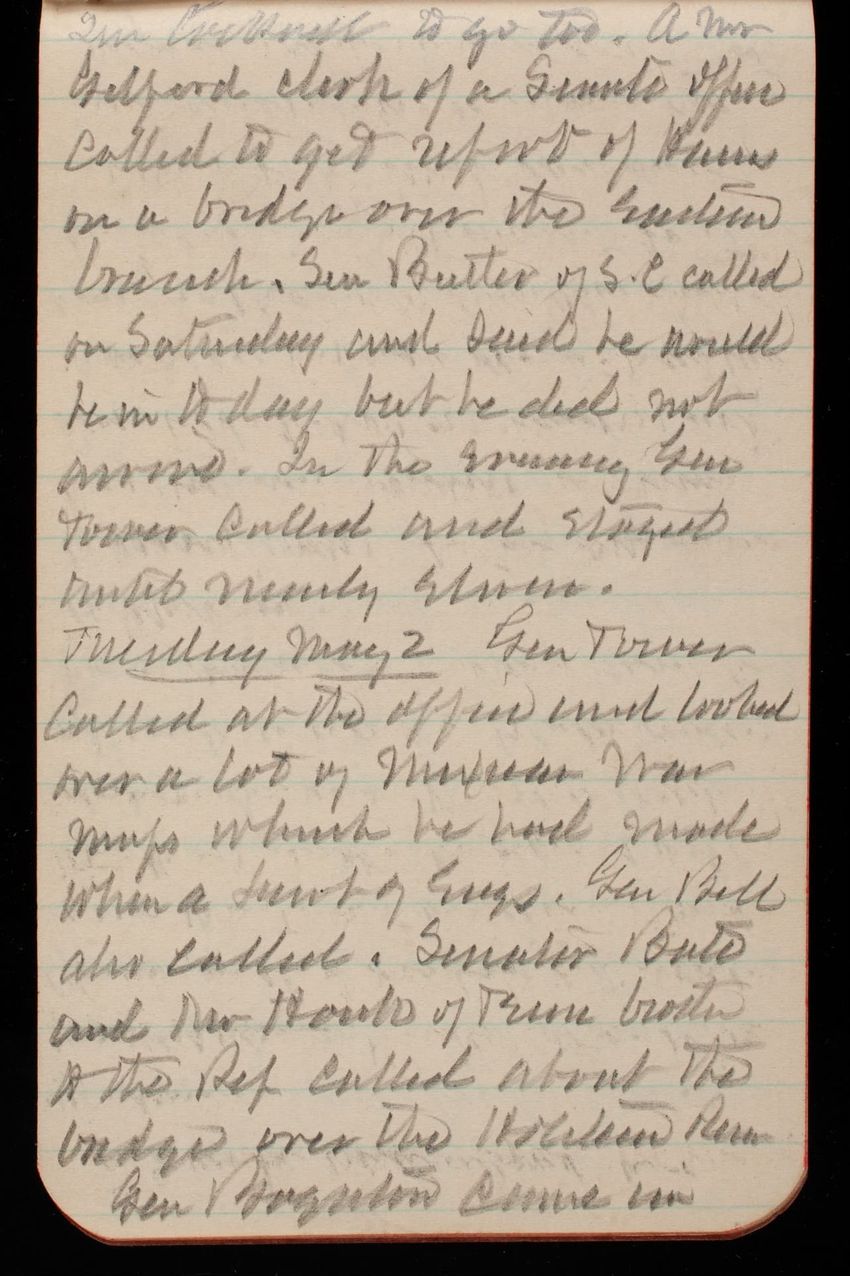 Gen Cockrell to go too. A Mr
Gelford clerk of a Senate office
called to get report of Hains
on a bridge over the Eastern
branch. Gen Butler of S.C called
on Saturday and said he would
be in today but he did not
arrive. In the evening Gen
Tower called and stayed
until nearly eleven.
Tuesday May 2 Gen Tower
called at the office and looked
over a lot of Mexican War
maps which he had made
when a Lieut of Engs. Gen Bell
also called. Senator Bate
and Mr Houk of Tenn brother
to the Rep called about the
bridge over the Holston River
Gen Boynton came in